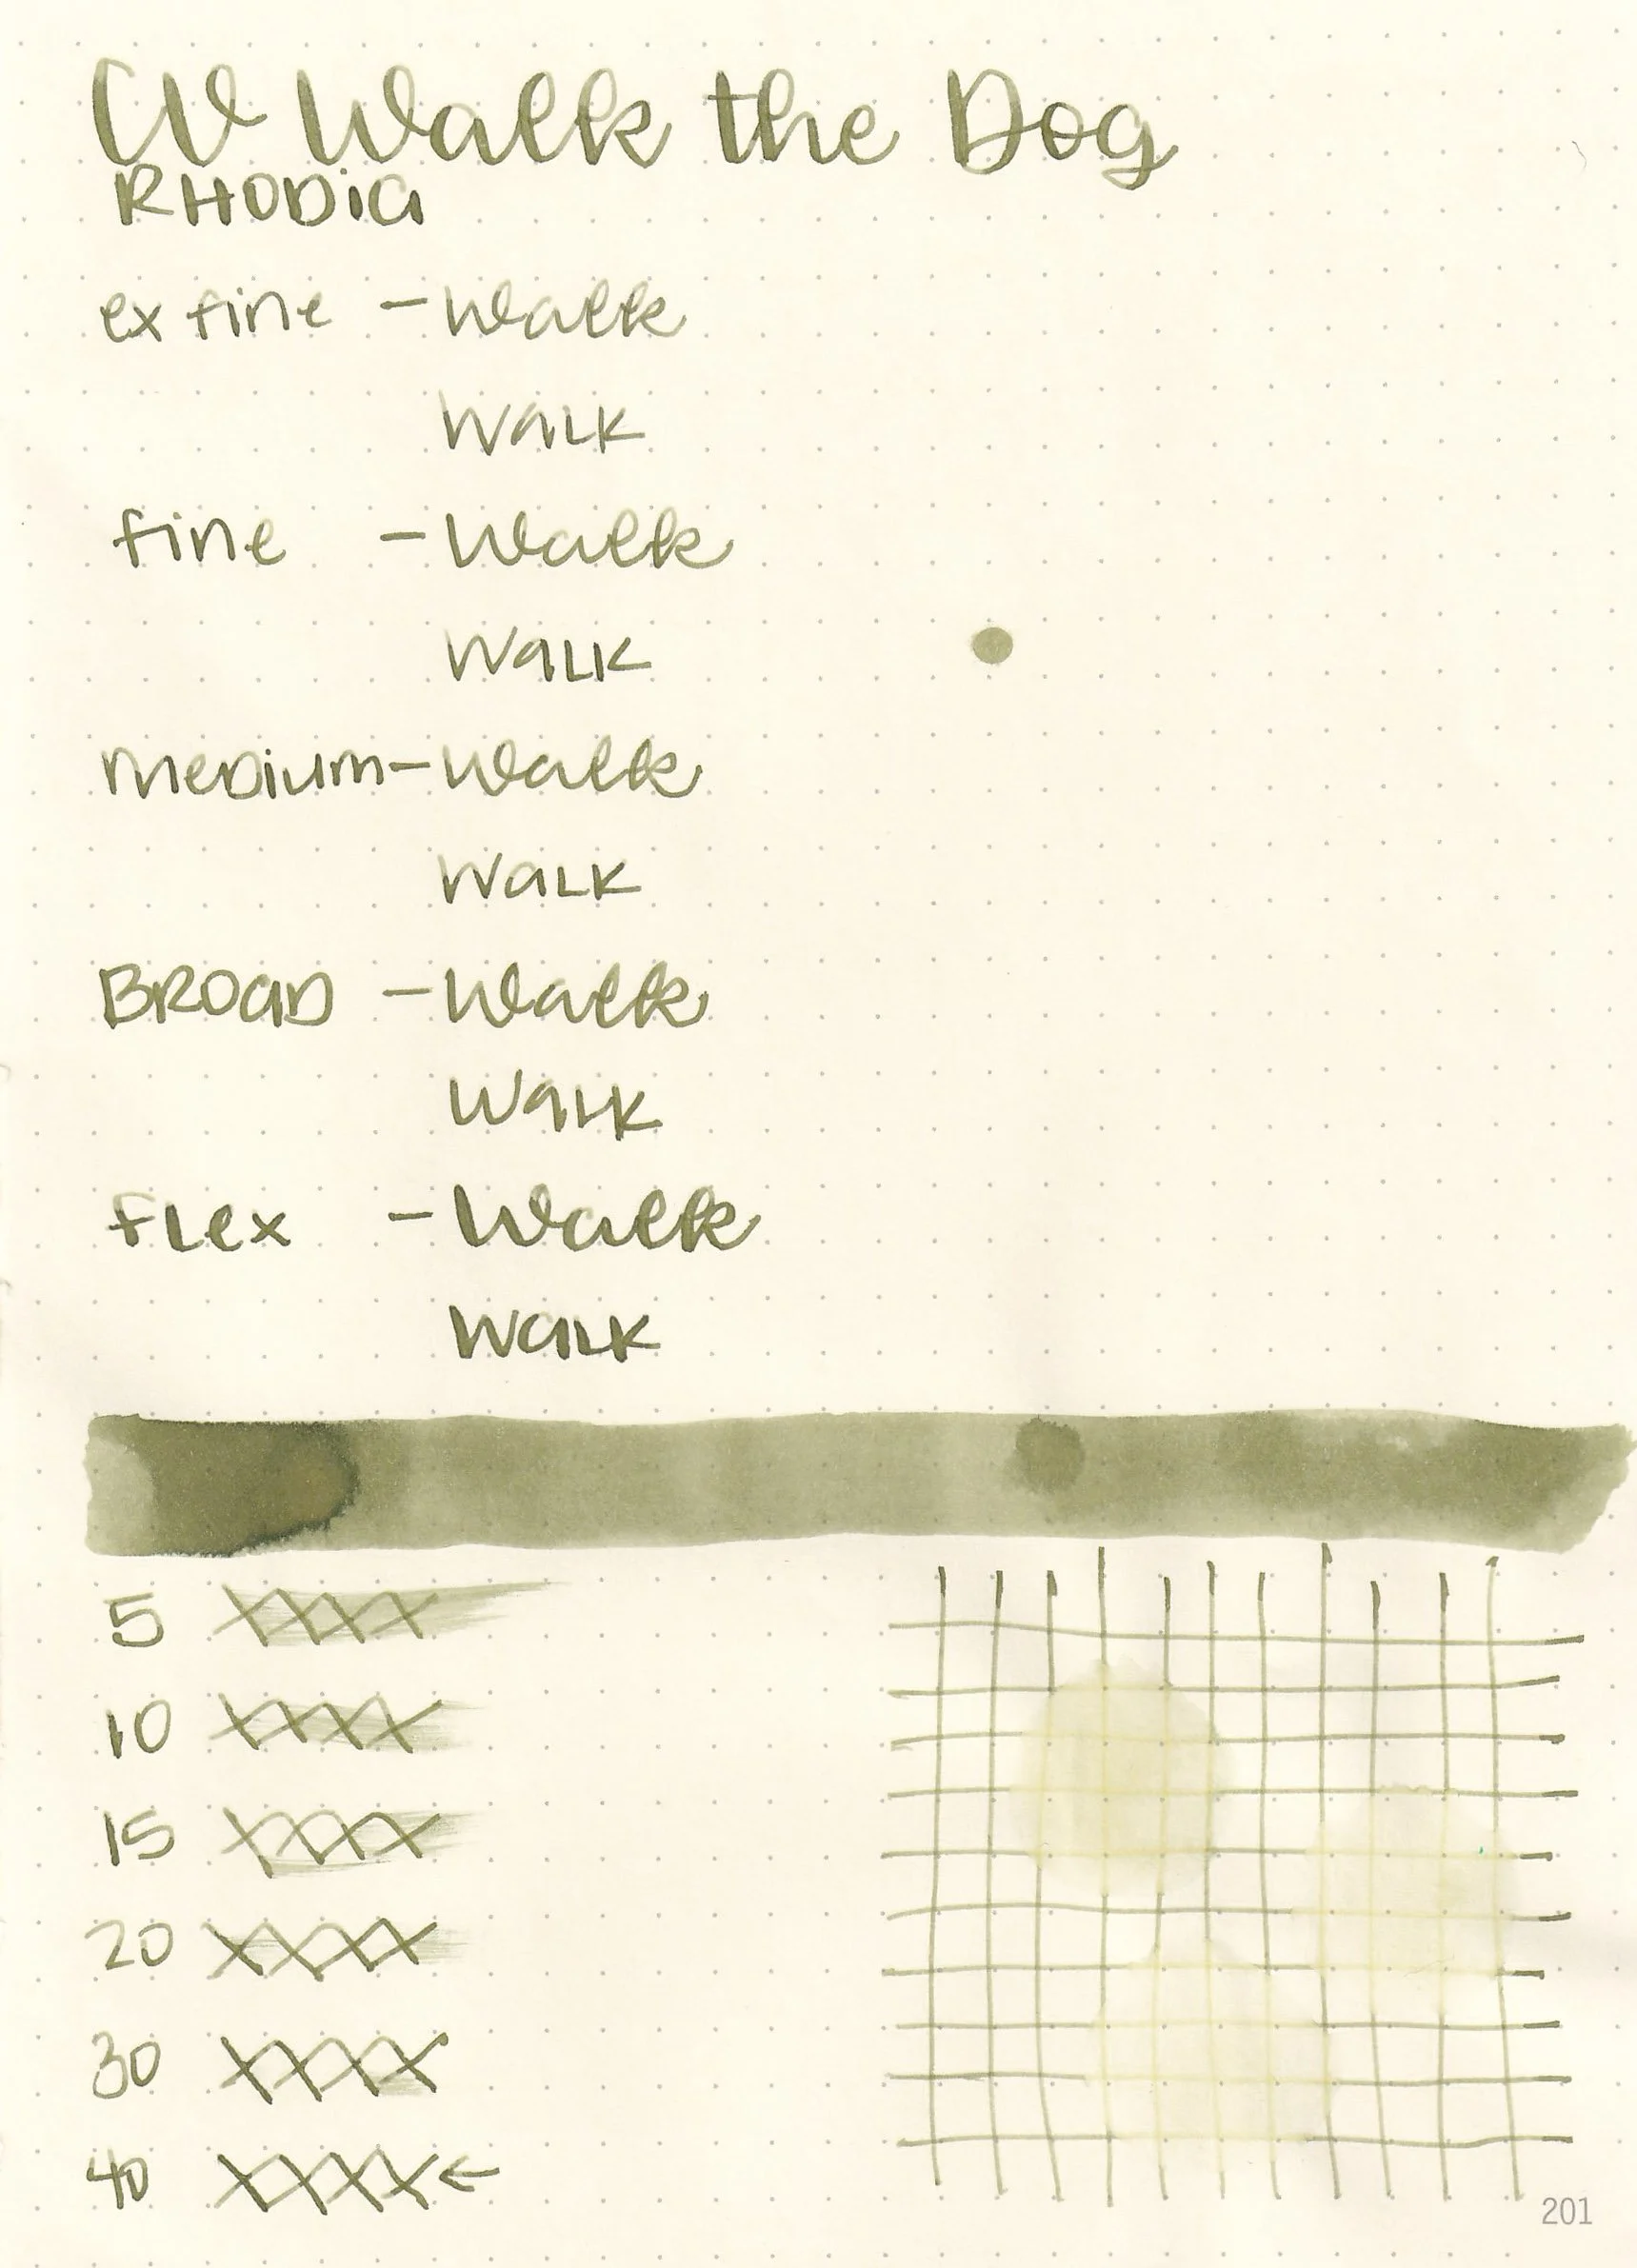 CV Walk the Dog
RHODIA
ex fine - Walk
WALK
fine - Walk
WALK
MEDIUM - Walk
WALK
BROAD - Walk
WALK
FLEX - Walk
WALK
5 XXXX
10 XXXX
15 XXXX
20 XXXX
30 XXXX
40 XXXX ←
201